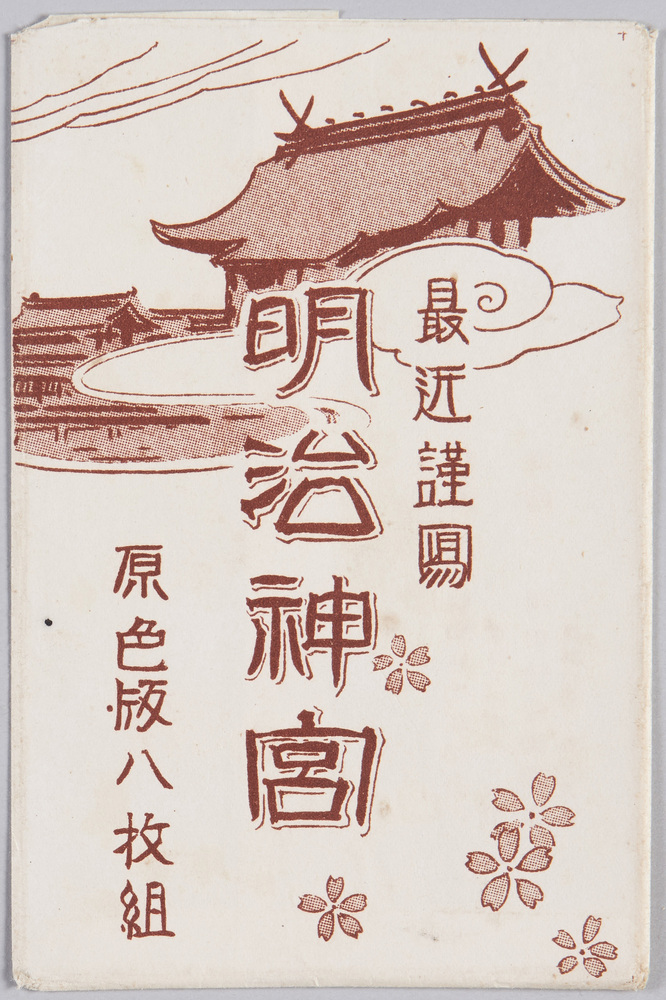 最近謹寫
明治神宮
原色版八枚組